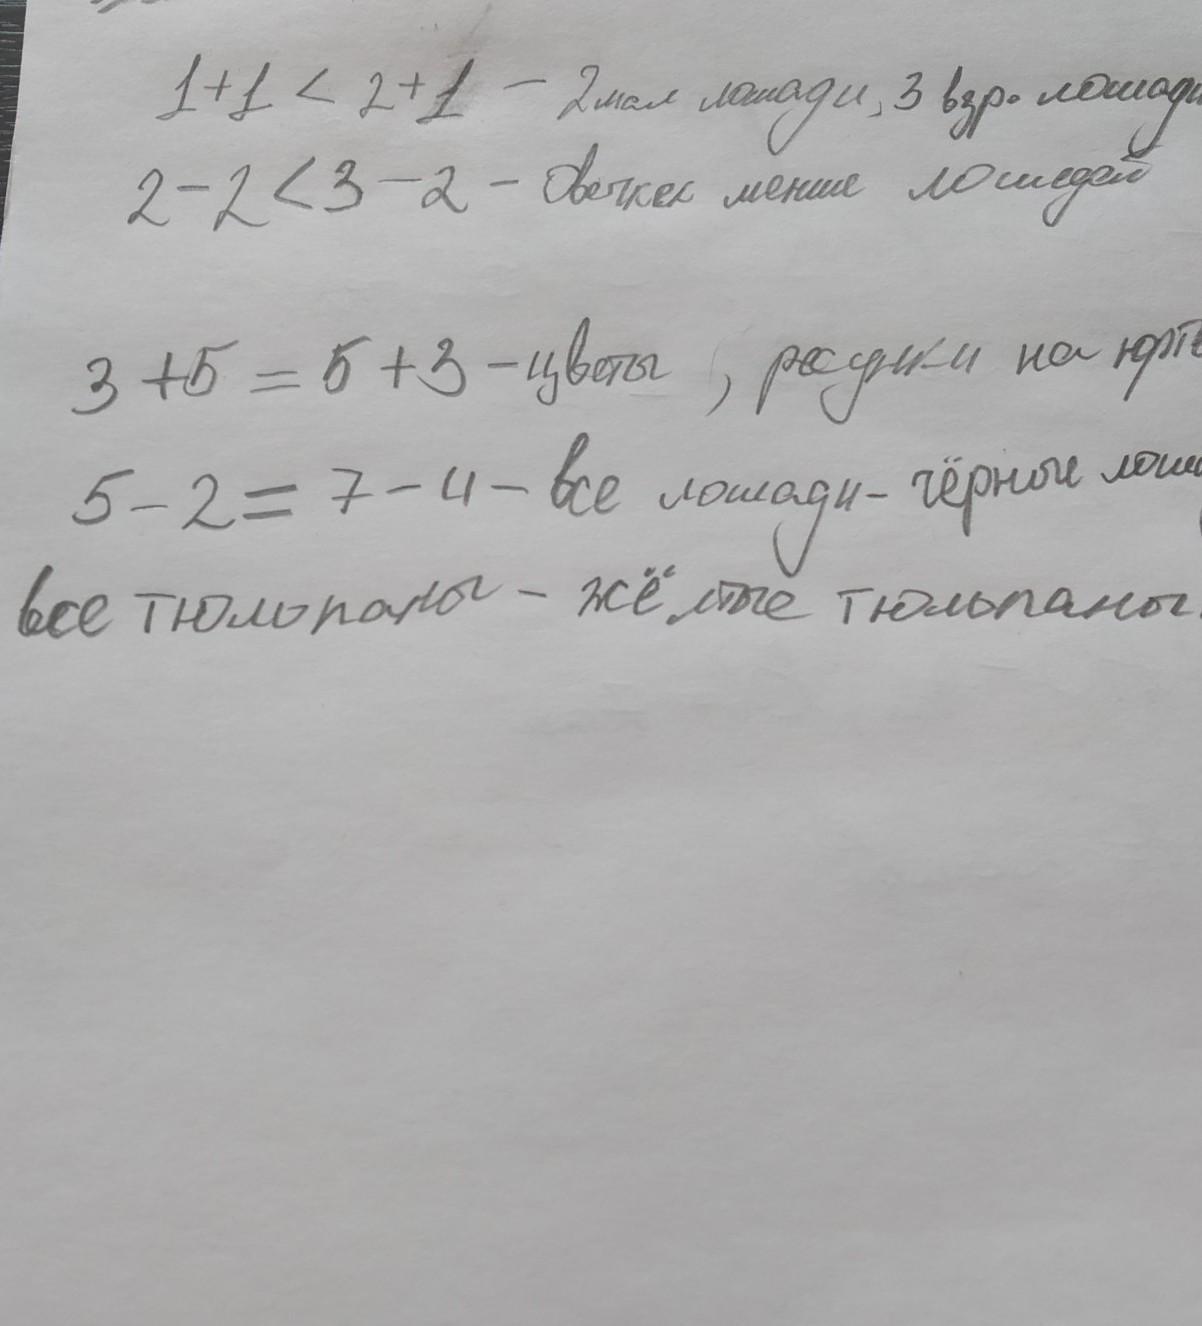 1+1 < 2+1 – 2 мал лошади, 3 взр. лошади
2–2 < 3–2 – Овечкек менше лошедей
3+5 = 5+3 – цветы, ресунки на юрте
5–2 = 7–4 – все лошади – чёрные лош
все тюльпаны – жёлтые тюльпаны.